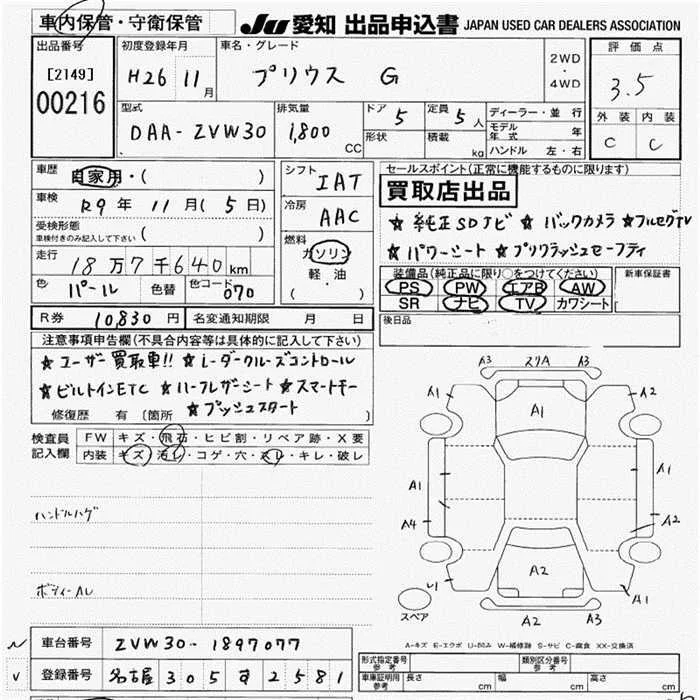 車内保管・守衛保管
JU 愛知 出品申込書 JAPAN USED CAR DEALERS ASSOCIATION
出品番号
[2149]
00216
初度登録年月
H26 11月
車名・グレード
プリウス G
2WD
・
4WD
評価点
3.5
外装 内装
C C
型式
DAA-ZVW30
排気量
1,800 CC
ドア 5
形状
定員 5人
積載 kg
ディーラー・並行
モデル年式 年
ハンドル 左・右
車歴 自家用・( )
車検 R9年 11月(5日)
受検形態
車検付きのみ記入して下さい ( )
走行 18万7千640km
色 パール 色替 色コード 070
シフト IAT
冷房 AAC
燃料
ガソリン
軽・油
( )
セールスポイント(正常に機能するものに限ります)
買取店出品
★純正SDナビ ★バックカメラ ★フルセグTV
★パワーシート ★プリクラッシュセーフティ
装備品(純正品に限り○をつけてください)
PS PW エアB AW
SR ナビ TV カワシート
新車保証書
後日品
R券 10,830円 名変通知期限 月 日
注意事項申告欄(不具合内容等は具体的に記入して下さい)
★ユーザー買取車!! ★レーダークルーズコントロール
★ビルトインETC ★ハーフレザーシート ★スマートキー
★プッシュスタート
修復歴 有 〔箇所 〕
検査員記入欄
FW キズ・飛石・ヒビ割・リペア跡・X要
内装 キズ・汚レ・コゲ・穴・スレ・キレ・破レ
ハンドルハゲ
ボディーAU
A3 スリA A3
A1 A1 A2
A1 A1
A4 A2
A2
U1 A1
A2 A3
スペア
A-キズ E-エクボ U-凹み W-補修跡 S-サビ C-腐食 XX-交換済
車台番号 ZVW30-1897077
登録番号 名古屋 305 す 2581
形式指定番号 参考
類別区分番号 参考
車庫証明用 参考 長さ cm 幅 cm 高さ cm